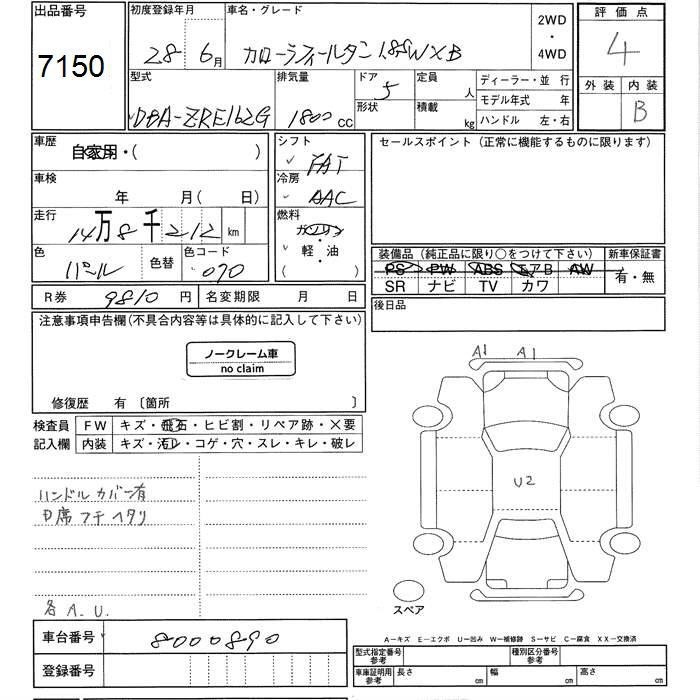 出品番号 初度登録年月 車名・グレード 2WD 評価点
7150 28年 6月 カローラフィールダー 1.8S W×B ・ 4
4WD
型式 排気量 ドア 5 定員 人 ディーラー・並 行 外装 内装
DBA-ZRE162G 1800 cc 形状 積載 kg モデル年式 年 B
ハンドル 左・右
車歴 自家用・( ) シフト FAT セールスポイント (正常に機能するものに限ります)
車検 年 月( 日) 冷房 AAC
走行 14万8千212 km 燃料 ガソリン
色 パール 色替 色コード 070 軽・油
( )
装備品 (純正品に限り○をつけて下さい) 新車保証書
PS PW ABS エアB AW 有・無
SR ナビ TV カワ
R券 9810 円 名変期限 月 日 後日品
注意事項申告欄(不具合内容等は具体的に記入して下さい)
ノークレーム車
no claim
修復歴 有 〔箇所 〕
検査員 FW キズ・飛石・ヒビ割・リペア跡・×要
記入欄 内装 キズ・汚レ・コゲ・穴・スレ・キレ・破レ
A1 A1
U2
ハンドル カバー有
D席 フチ ヘタリ
各 A.U.
スペア
A-キズ E-エクボ U-凹み W-補修跡 S-サビ C-腐食 XX-交換済
車台番号 8000890
登録番号
型式指定番号 参考 種別区分番号 参考
車庫証明用 参考 長さ cm 幅 cm 高さ cm